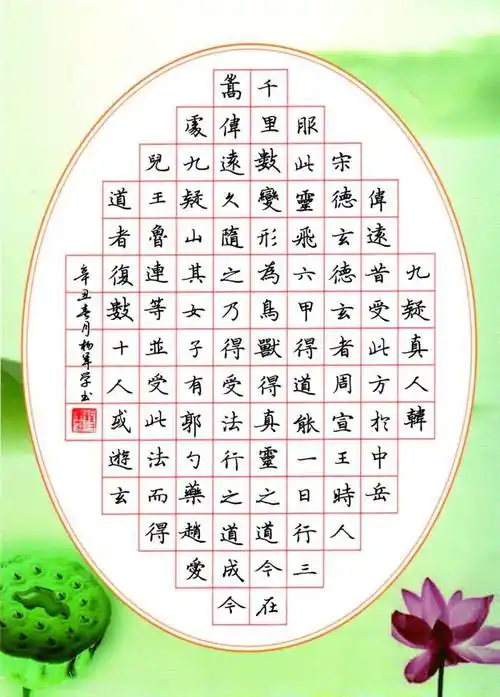 九疑真人韓
偉遠昔受此方於中岳
宋德玄德玄者周宣王時人
服此靈飛六甲得道能一日行三
千里數變形為鳥獸得真靈之道今在
嵩偉遠久隨之乃得受法行之道成今
處九疑山其女子有郭勺藥趙愛
兒王魯連等並受此法而得
道者復數十人或遊玄
辛丑春月杨軍学书